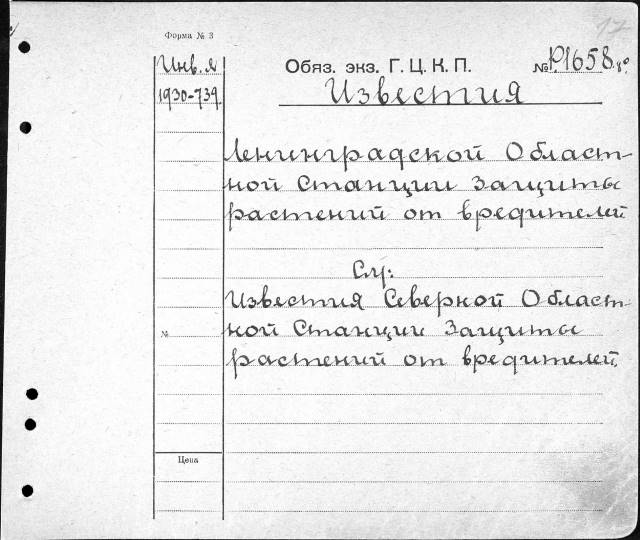 17
Форма № 3
Инв. л
Обяз. экз. Г. Ц. К. П. № Р1658 8°.
1930-739.
Известия
Ленинградской Област-
ной Станции Защиты
растений от вредителей
См:
Известия Северной Област-
ной Станции Защиты
№
растений от вредителей.
Цена